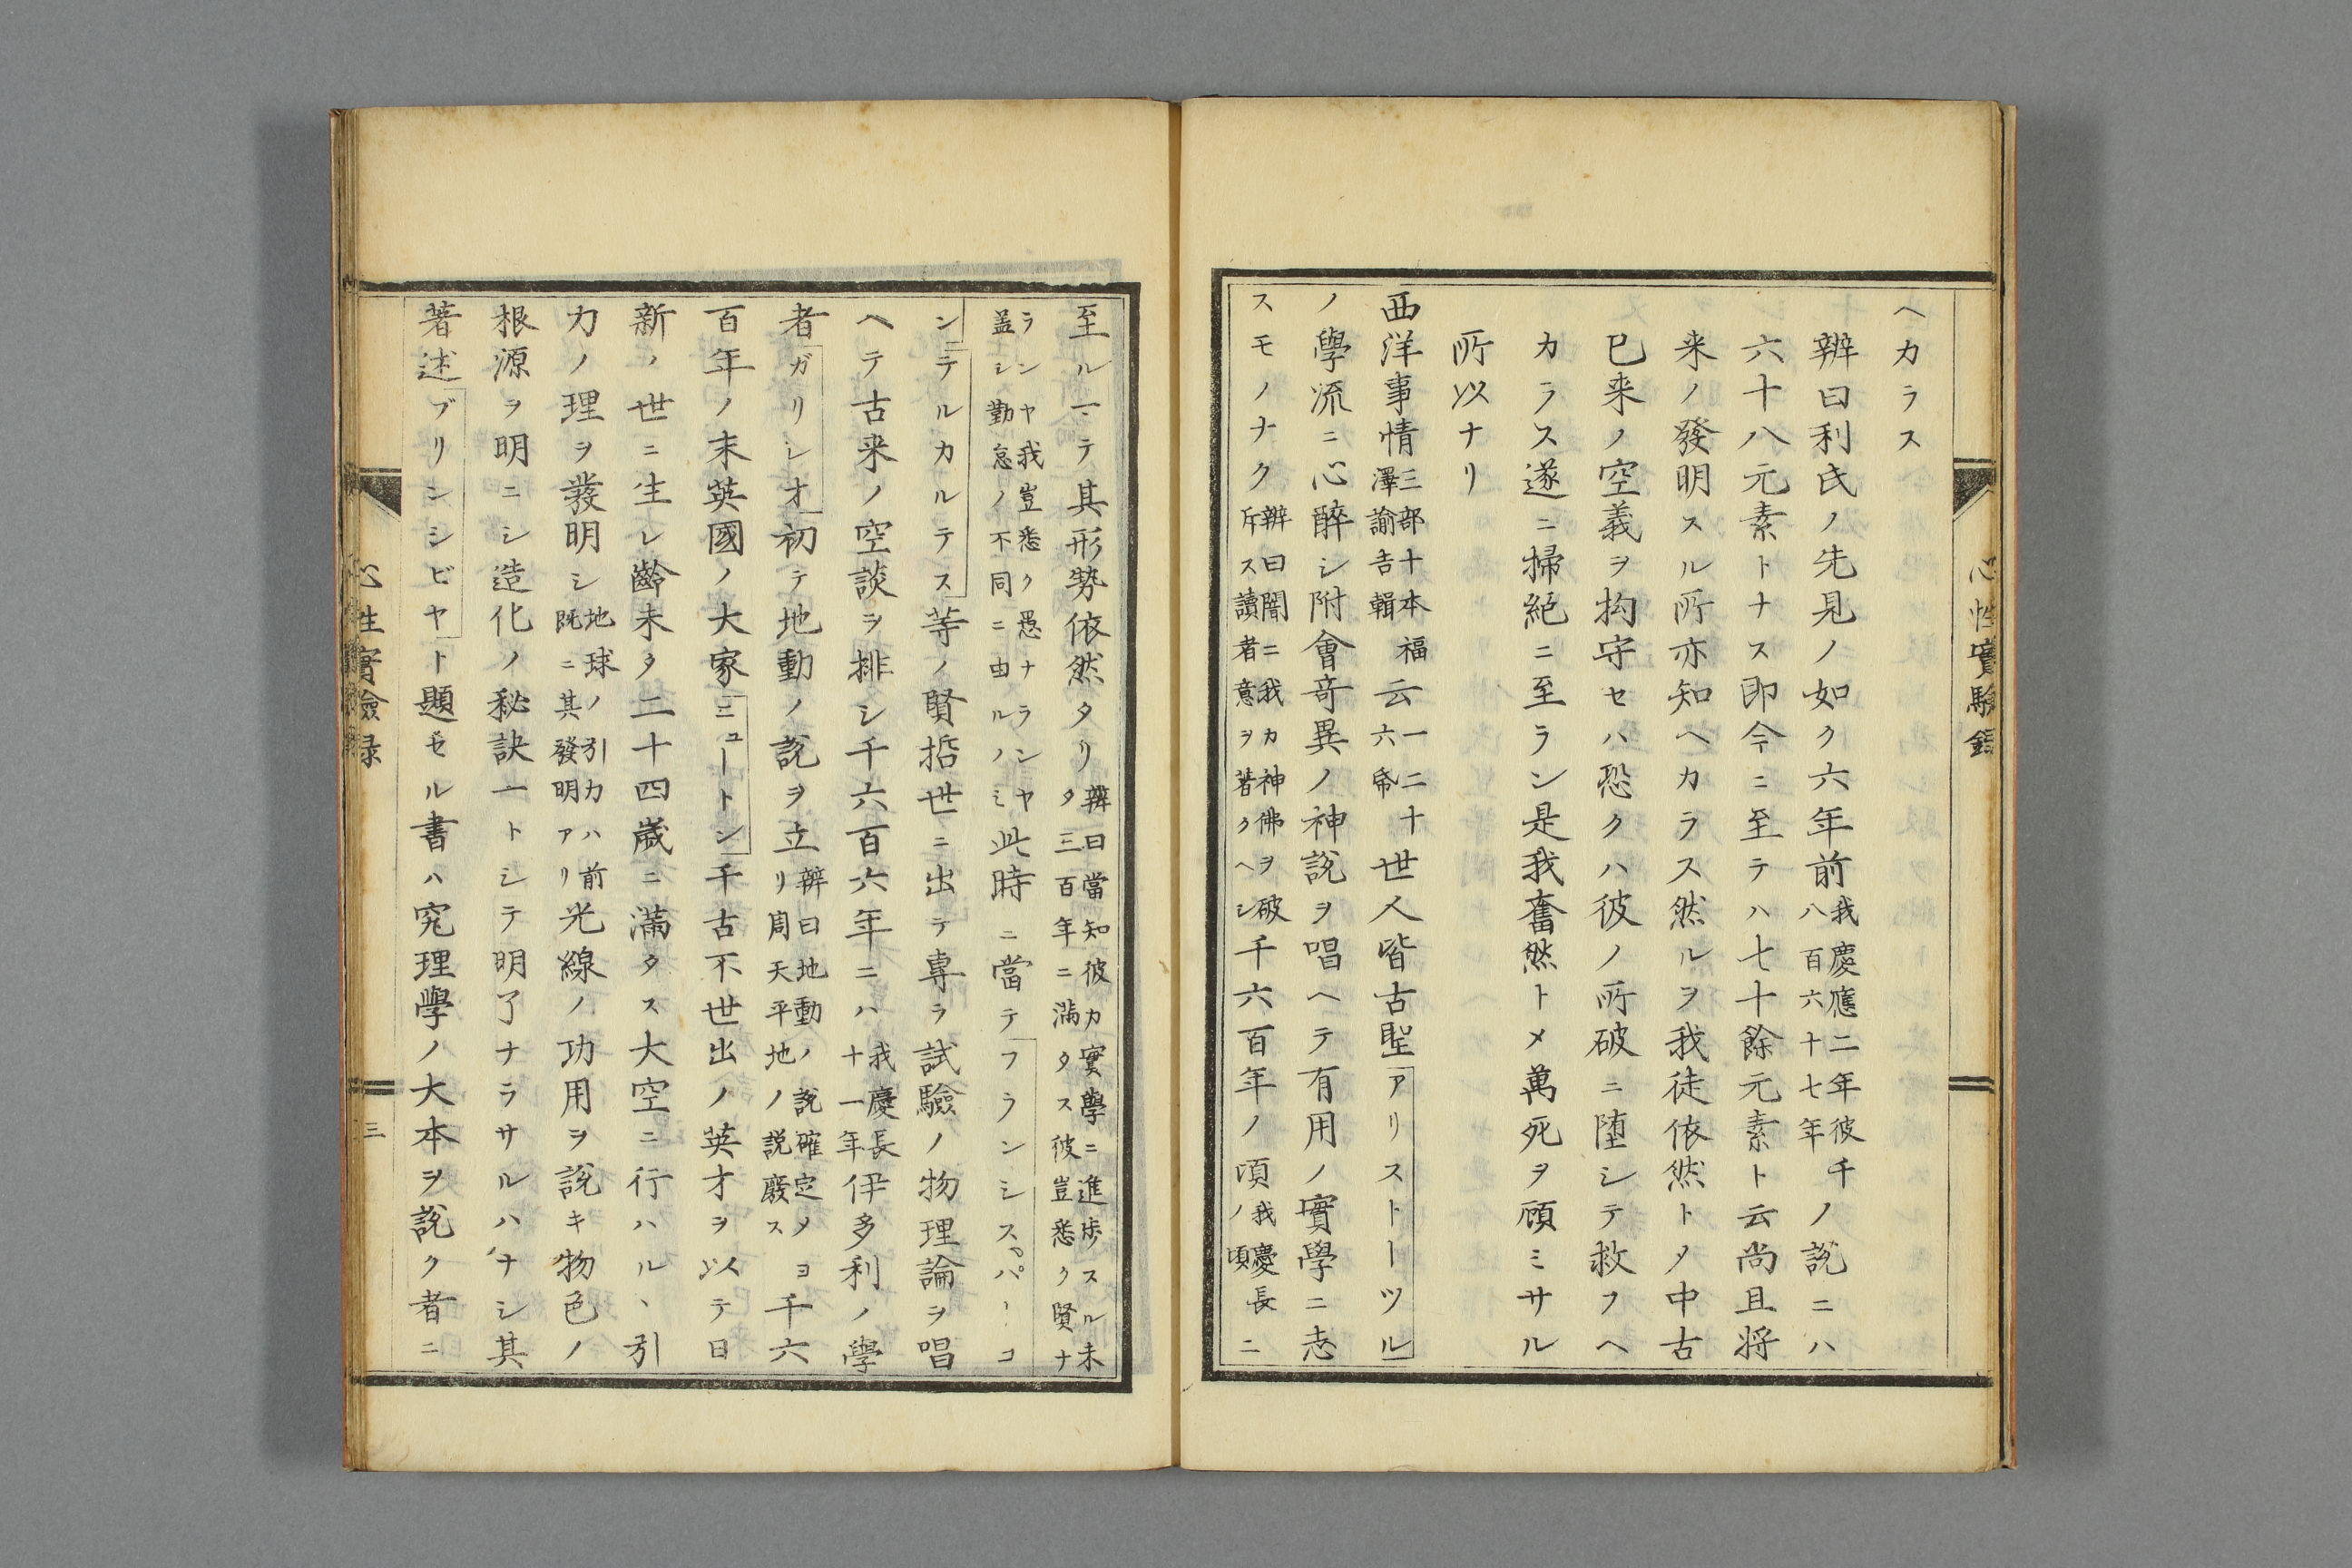 ヘカラス
辨曰利氏ノ先見ノ如ク六年前我慶應二年彼千八百六十七年ノ說ニハ
六十八元素トナス即今ニ至テハ七十餘元素ト云尚且将
来ノ發明スル所亦知ヘカラス然ルヲ我徒依然トメ中古
已来ノ空義ヲ拘守セハ恐クハ彼ノ所破ニ堕シテ救フヘ
カラス遂ニ掃絶ニ至ラン是我奮然トメ萬死ヲ顧ミサル
所以ナリ
西洋事情三部十本福澤諭吉輯云一二十六帋世人皆古聖アリストーツル
ノ學流ニ心醉シ附會奇異ノ神說ヲ唱ヘテ有用ノ實學ニ志
スモノナク辨曰闇ニ我カ神佛ヲ破斥ス讀者意ヲ著クヘシ千六百年ノ頃我慶長ニノ頃
至ル一テ其形勢依然タリ辨曰當知彼カ實學ニ進歩スル未タ三百年ニ満タス彼豈悉ク賢ナ
ランヤ我豈悉ク愚ナランヤ盖シ勤怠ノ不同ニ由ルノミ此時ニ當テフランシスパーコ
ンテルカルテス等ノ賢哲世ニ出テ專ラ試驗ノ物理論ヲ唱
ヘテ古来ノ空談ヲ排シ千六百六年ニハ我慶長十一年伊多利ノ學
者ガリレオ初テ地動ノ說ヲ立辨曰地動ノ說確定メヨリ周天平地ノ說廢ス千六
百年ノ末英國ノ大家ニュートン千古不世出ノ英才ヲ以テ日
新ノ世ニ生レ齡未タ二十四歳ニ滿タス大空ニ行ハルヽ引
力ノ理ヲ發明シ地球ノ引力ハ前既ニ其發明アリ光線ノ功用ヲ說キ物色ノ
根源ヲ明ニシ造化ノ秘訣一トシテ明了ナラサルハナシ其
著述プリンシピヤト題セル書ハ究理學ノ大本ヲ說ク者ニ
心性實驗録
心性實驗録
三